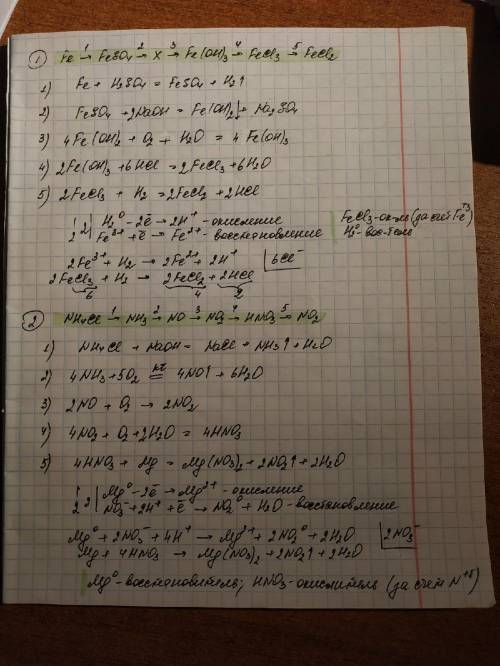 ① Fe →¹ FeSO₄ →² X →³ Fe(OH)₃ →⁴ FeCl₃ →⁵ FeCl₂
1) Fe + H₂SO₄ = FeSO₄ + H₂↑
2) FeSO₄ + 2NaOH = Fe(OH)₂↓ + Na₂SO₄
3) 4Fe(OH)₂ + O₂ + H₂O = 4Fe(OH)₃
4) 2Fe(OH)₃ + 6HCl = 2FeCl₃ + 6H₂O
5) 2FeCl₃ + H₂ = 2FeCl₂ + 2HCl
1 | 2 | H₂⁰ - 2ē → 2H⁺ - окисление
2 | 2 | Fe³⁺ + ē → Fe²⁺ - восстановление
FeCl₃ - ок-ль (за счёт Fe⁺³)
H₂⁰ - вос-тель
2Fe³⁺ + H₂ → 2Fe²⁺ + 2H⁺ | 6Cl⁻
2FeCl₃ + H₂ → 2FeCl₂ + 2HCl
6 4 2
② NH₄Cl →¹ NH₃ →² NO →³ NO₂ →⁴ HNO₃ →⁵ NO₂
1) NH₄Cl + NaOH = NaCl + NH₃↑ + H₂O
2) 4NH₃ + 5O₂ = 4NO↑ + 6H₂O
3) 2NO + O₂ → 2NO₂
4) 4NO₂ + O₂ + 2H₂O = 4HNO₃
5) 4HNO₃ + Mg = Mg(NO₃)₂ + 2NO₂↑ + 2H₂O
1 | 2 | Mg⁰ - 2ē → Mg²⁺ - окисление
2 | 2 | NO₃⁻ + 2H⁺ + ē → NO₂⁰ + H₂O - восстановление
Mg⁰ + 2NO₃⁻ + 4H⁺ → Mg²⁺ + 2NO₂⁰ + 2H₂O | 2NO₃⁻
Mg + 4HNO₃ → Mg(NO₃)₂ + 2NO₂↑ + 2H₂O
Mg⁰ - восстановитель; HNO₃ - окислитель (за счёт N⁺⁵)